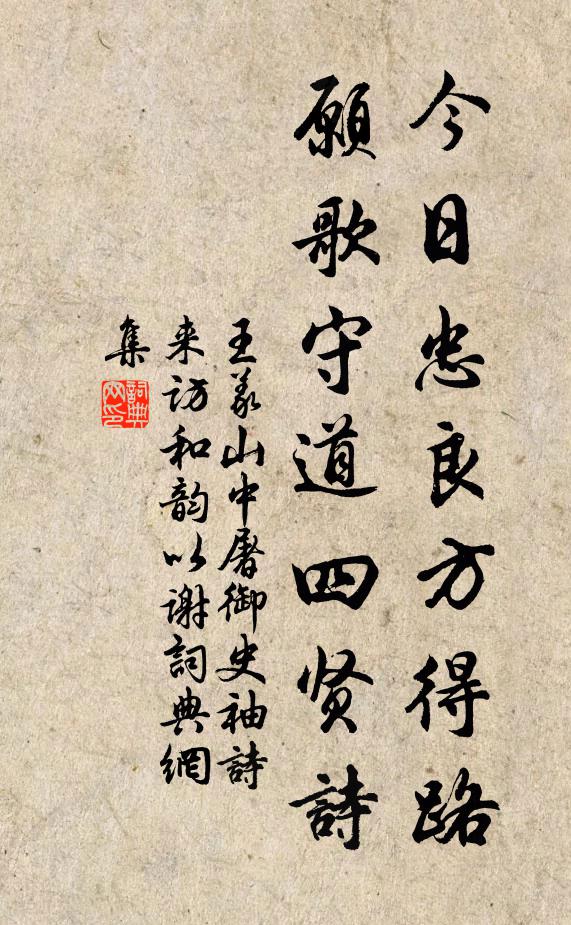 今日忠良方得路
願歌守道四贤詩
王义山中屠御史袖詩
来访和韵以谢詞典網
集
詞典网印